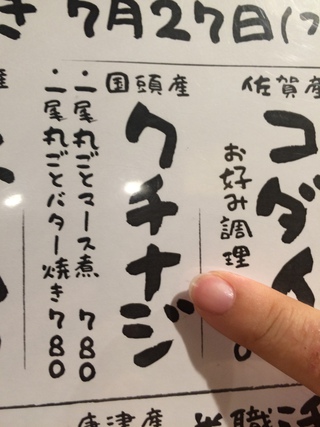 7月27日(
佐賀産
コダイ
お好み調理
国頭産
クチナジ
・一尾丸ごとマース煮 780
・一尾丸ごとバター焼き 780
唐津産